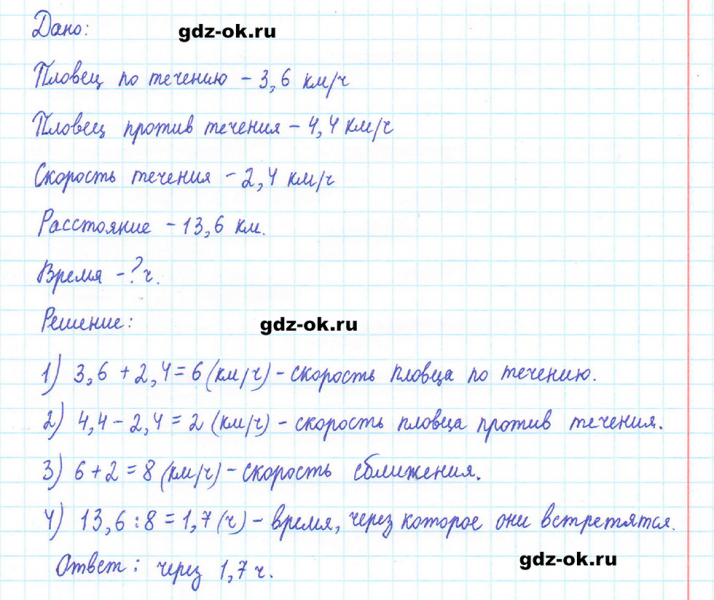 Дано:
gdz-ok.ru
Пловец по течению - 3,6 км/ч
Пловец против течения - 4,4 км/ч
Скорость течения - 2,4 км/ч
Расстояние - 13,6 км.
Время - ? ч.
Решение:
gdz-ok.ru
1) 3,6 + 2,4 = 6 (км/ч) - скорость пловца по течению.
2) 4,4 - 2,4 = 2 (км/ч) - скорость пловца против течения.
3) 6 + 2 = 8 (км/ч) - скорость сближения.
4) 13,6 : 8 = 1,7 (ч) - время, через которое они встретятся.
Ответ: через 1,7 ч.
gdz-ok.ru